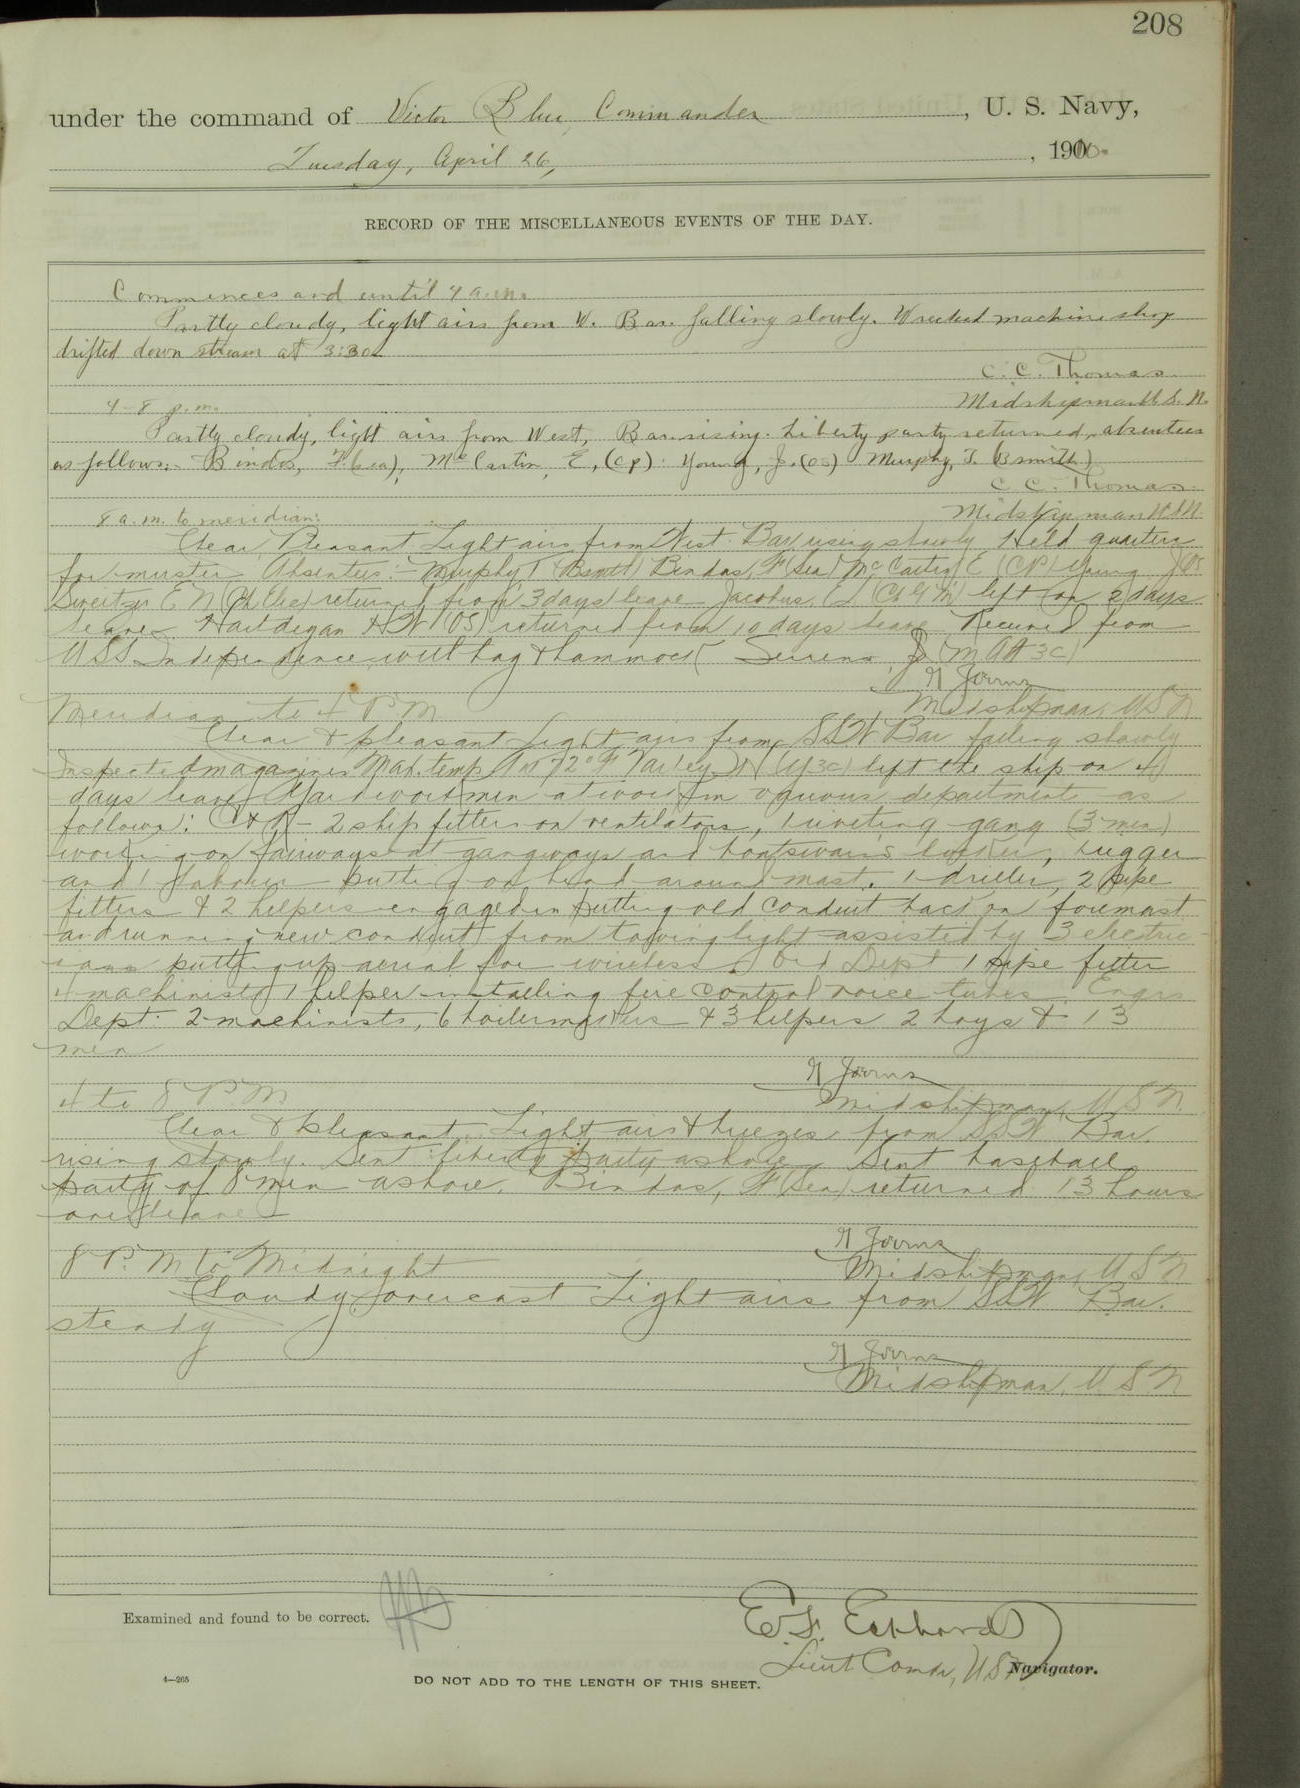 208
under the command of Victor Blue, Commander, U. S. Navy,
Tuesday, April 26, 1910.
RECORD OF THE MISCELLANEOUS EVENTS OF THE DAY.
Commences and until 4 a.m.
Partly cloudy, light airs from W. Bar. falling slowly. Wrecked machine shop
drifted down stream at 3:30.
C. C. Thomas.
4-8 p.m.
Midshipman U.S.N.
Partly cloudy, light airs from West, Bar. rising. Liberty party returned, absentees
as follows:- Bindas, F. (sea), McCartin, E, (cp) Young, J. (os) Murphy, T. (Bsmith)
C. C. Thomas.
8 a.m. to meridian:
Midshipman U.S.N.
Clear, Pleasant. Light airs from West. Bar rising slowly Held quarters
for muster. Absentees:- Murphy T (Bsmth) Bindas, F (Sea) McCartin E (CP) Young J (OS
Sweitzer E N (Ch Elec) returned from 3 days leave Jacobus, (Ch G M) left on 2 days
leave. Hartdegan H W (OS) returned from 10 days leave Received from
USS Independence with bag & hammock (M Att 3c)
Midshipman, U S N
Meridian to 4 P M
Clear & pleasant Light airs from SSW Bar falling slowly
Inspected magazines Max. temp. 72° F (Y3c) left the ship on 4
days leave Yard workmen at work in various departments as
follows: C & R - 2 ship fitters on ventilators, 1 riveting gang (3 men)
working on fairways at gangways and boatswain's locker, 1 rigger
and 1 laborer putting on band around mast. 1 driller, 2 pipe
fitters & 2 helpers engaged in putting old conduit back on foremast
and running new conduit from towing light assisted by 3 electric-
ians putting up aerial for wireless Ord Dept 1 pipe fitter
4 machinists 1 helper installing fire control voice tubes. Engrs
Dept: 2 machinists, 6 boilermakers & 3 helpers 2 boys & 13
men
4 to 8 P M
Midshipman, U S N.
Clear & pleasant. Light airs & breezes from SSW Bar
rising slowly. Sent liberty party ashore. Sent baseball
party of 8 men ashore. Bindas, F (Sea) returned 13 hours
overleave
8 P. M to Midnight
Midshipman, U S N
Cloudy overcast Light airs from SSW Bar.
steady
Midshipman, U S N
Examined and found to be correct.
E. F. Eckhardt
Lieut Comdr, USN
Navigator.
4—265
DO NOT ADD TO THE LENGTH OF THIS SHEET.